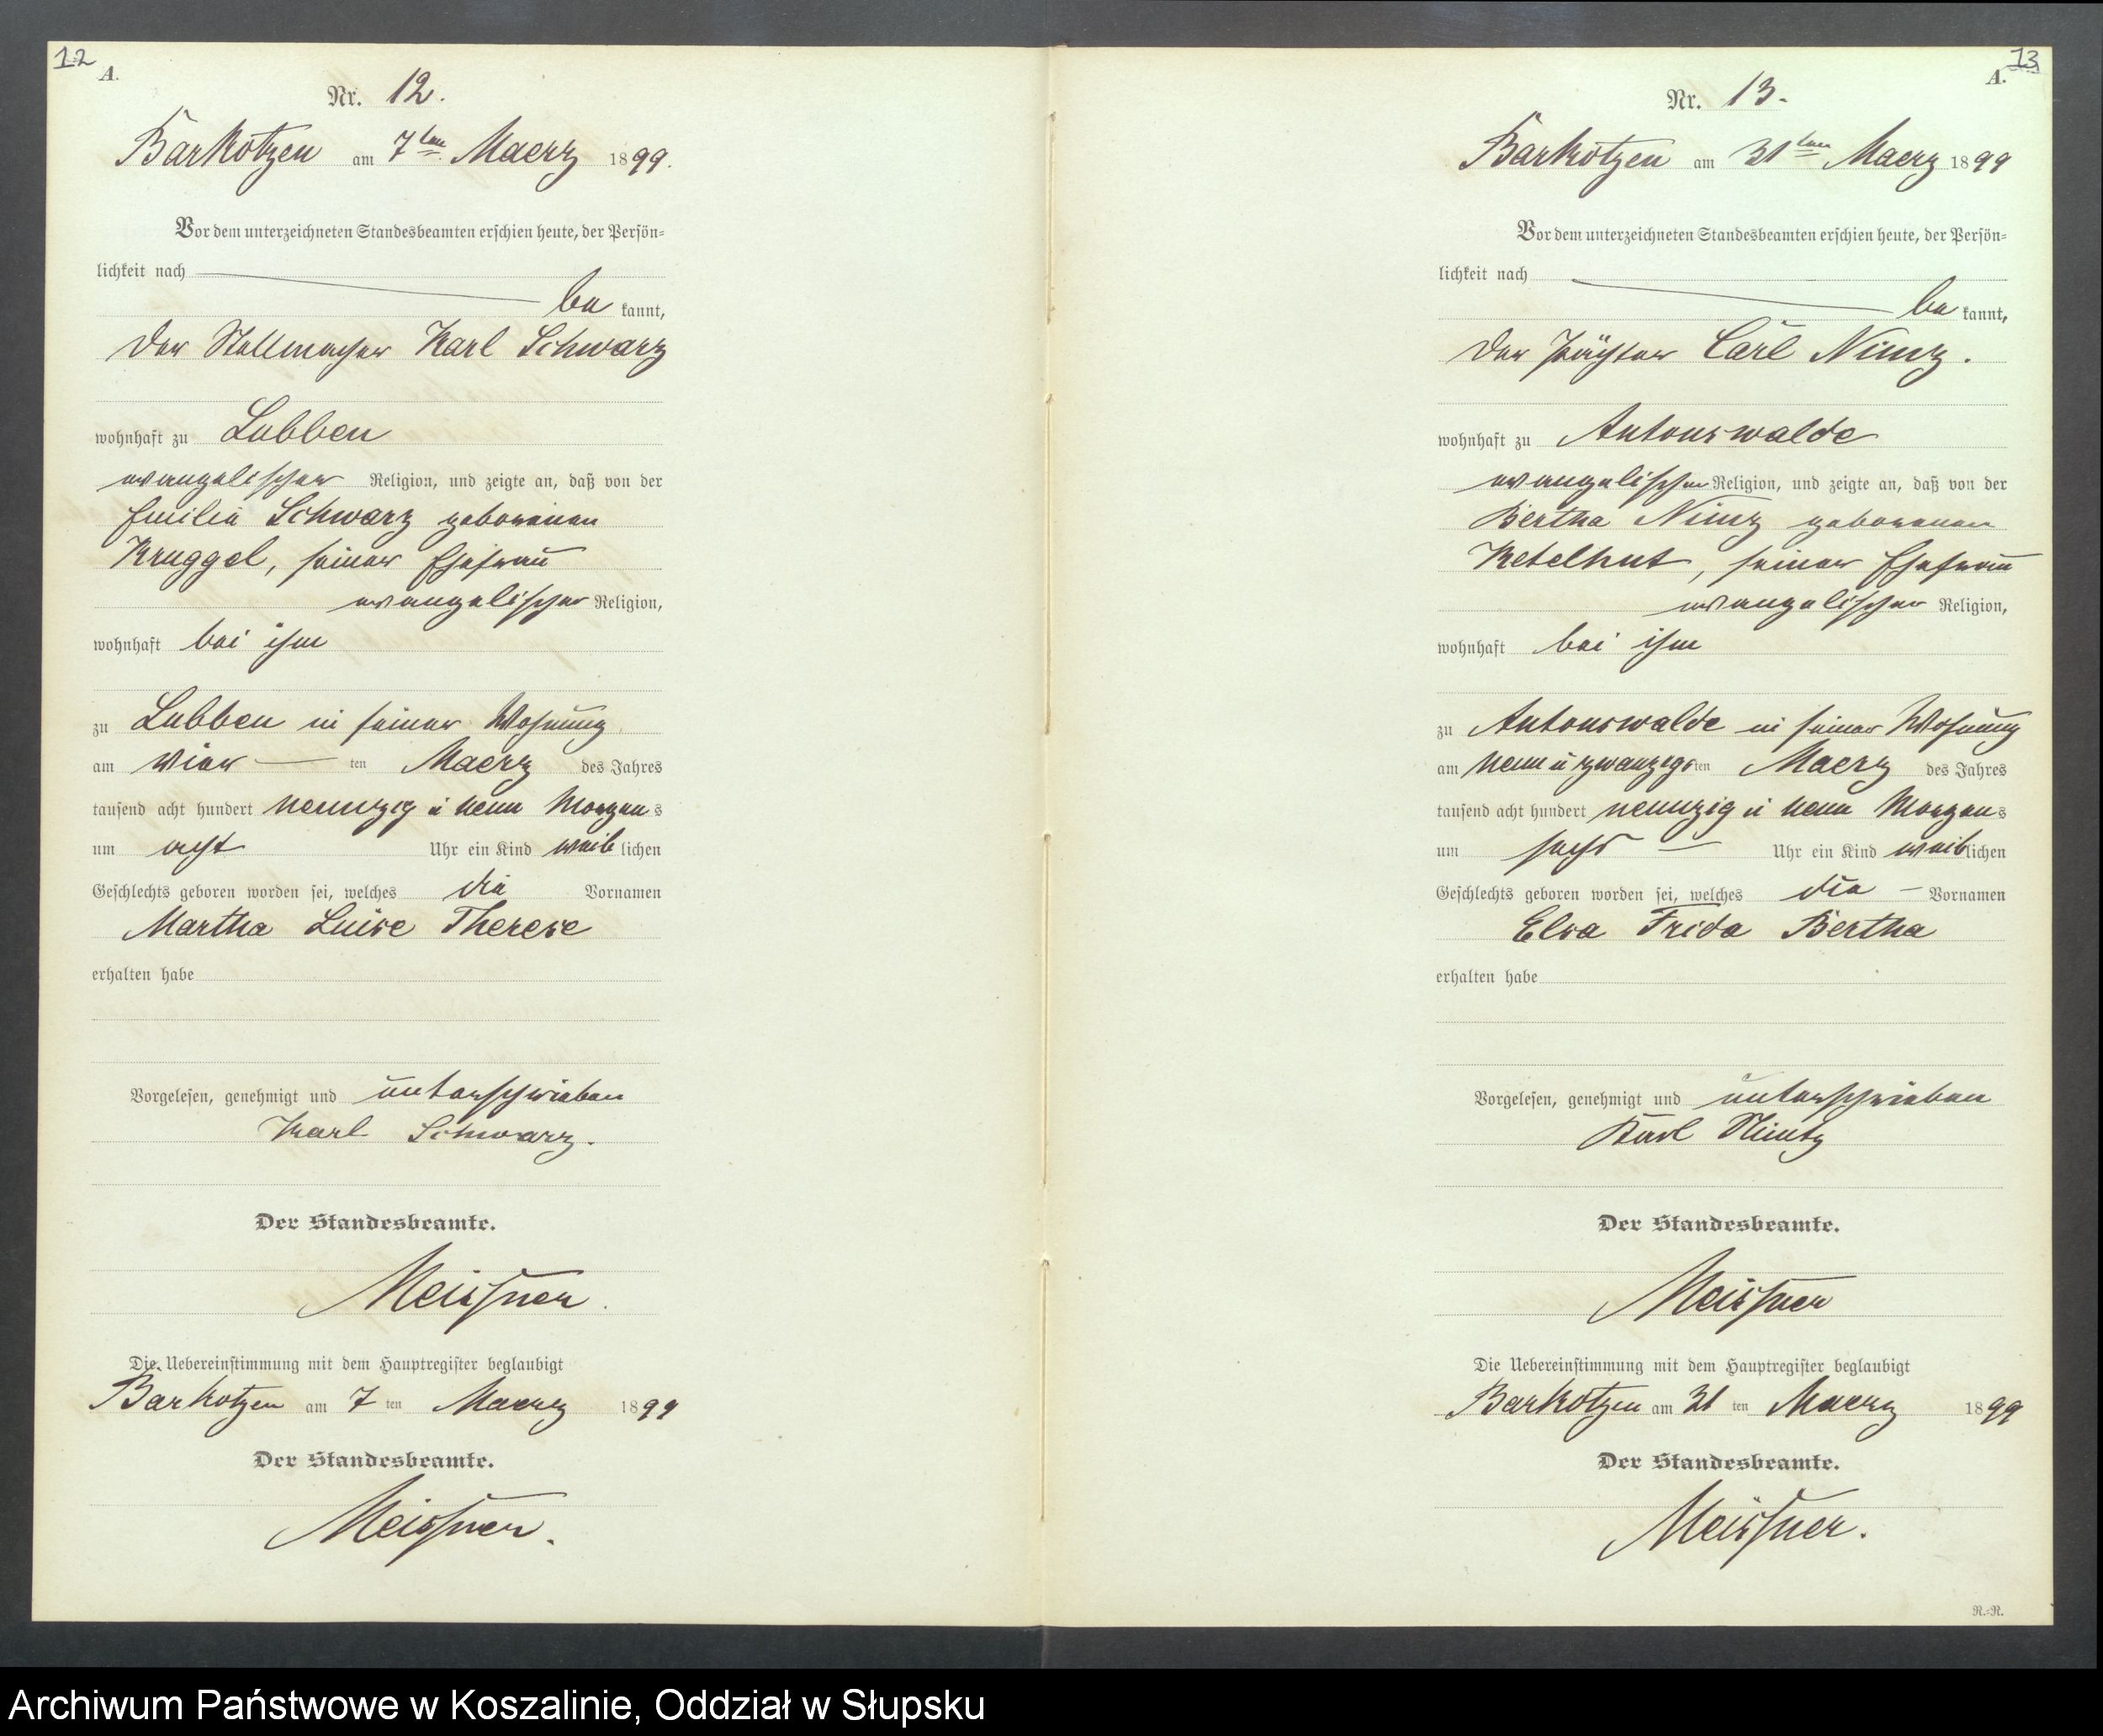 12
A.
Nr. 12.
Barkotzen am 7ten Maerz 1899.
Vor dem unterzeichneten Standesbeamten erschien heute, der Persön=
lichkeit nach
bekannt,
der Stellmacher Karl Schwarz
wohnhaft zu Lubben
evangelischer Religion, und zeigte an, daß von der
Emilie Schwarz geborenen
Kruggel, seiner Ehefrau
evangelischer Religion,
wohnhaft bei ihm
zu Lubben in seiner Wohnung
am vierten Maerz des Jahres
tausend acht hundert neunzig u neun Morgens
um acht Uhr ein Kind weiblichen
Geschlechts geboren worden sei, welches die Vornamen
Martha Luise Therese
erhalten habe
Vorgelesen, genehmigt und unterschrieben
Karl Schwarz.
Der Standesbeamte.
Meissner.
Die Uebereinstimmung mit dem Hauptregister beglaubigt
Barkotzen am 7ten Maerz 1899
Der Standesbeamte.
Meissner.
13
A.
Nr. 13.
Barkotzen am 31ten Maerz 1899
Vor dem unterzeichneten Standesbeamten erschien heute, der Persön=
lichkeit nach
bekannt,
der Pächter Carl Nimz.
wohnhaft zu Antonswalde
evangelischer Religion, und zeigte an, daß von der
Bertha Nimz geborenen
Ketelhut, seiner Ehefrau
evangelischer Religion,
wohnhaft bei ihm
zu Antonswalde in seiner Wohnung
am neun u zwanzigsten Maerz des Jahres
tausend acht hundert neunzig u neun Morgens
um sechs Uhr ein Kind weiblichen
Geschlechts geboren worden sei, welches die Vornamen
Elsa Frida Bertha
erhalten habe
Vorgelesen, genehmigt und unterschrieben
Karl Nimtz
Der Standesbeamte.
Meissner
Die Uebereinstimmung mit dem Hauptregister beglaubigt
Barkotzen am 31ten Maerz 1899
Der Standesbeamte.
Meissner.
R.=R.
Archiwum Państwowe w Koszalinie, Oddział w Słupsku